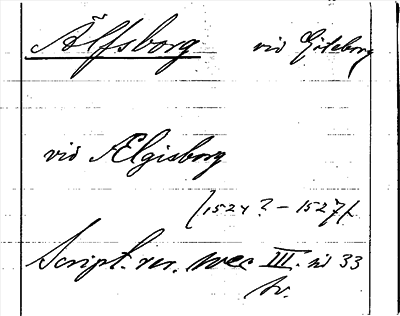 Älfsborg vid Göteborg
vid Ælgisborg
(1524? – 1527)
Script. rer. svec III. sid 33